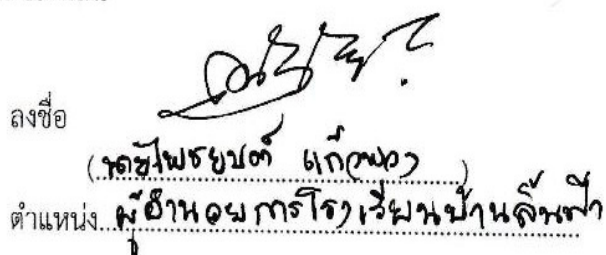 ลงชื่อ
(นายไพรยนต์ แก้วพวง)
ตำแหน่ง ผู้อำนวยการโรงเรียนบ้านลิ้นฟ้า